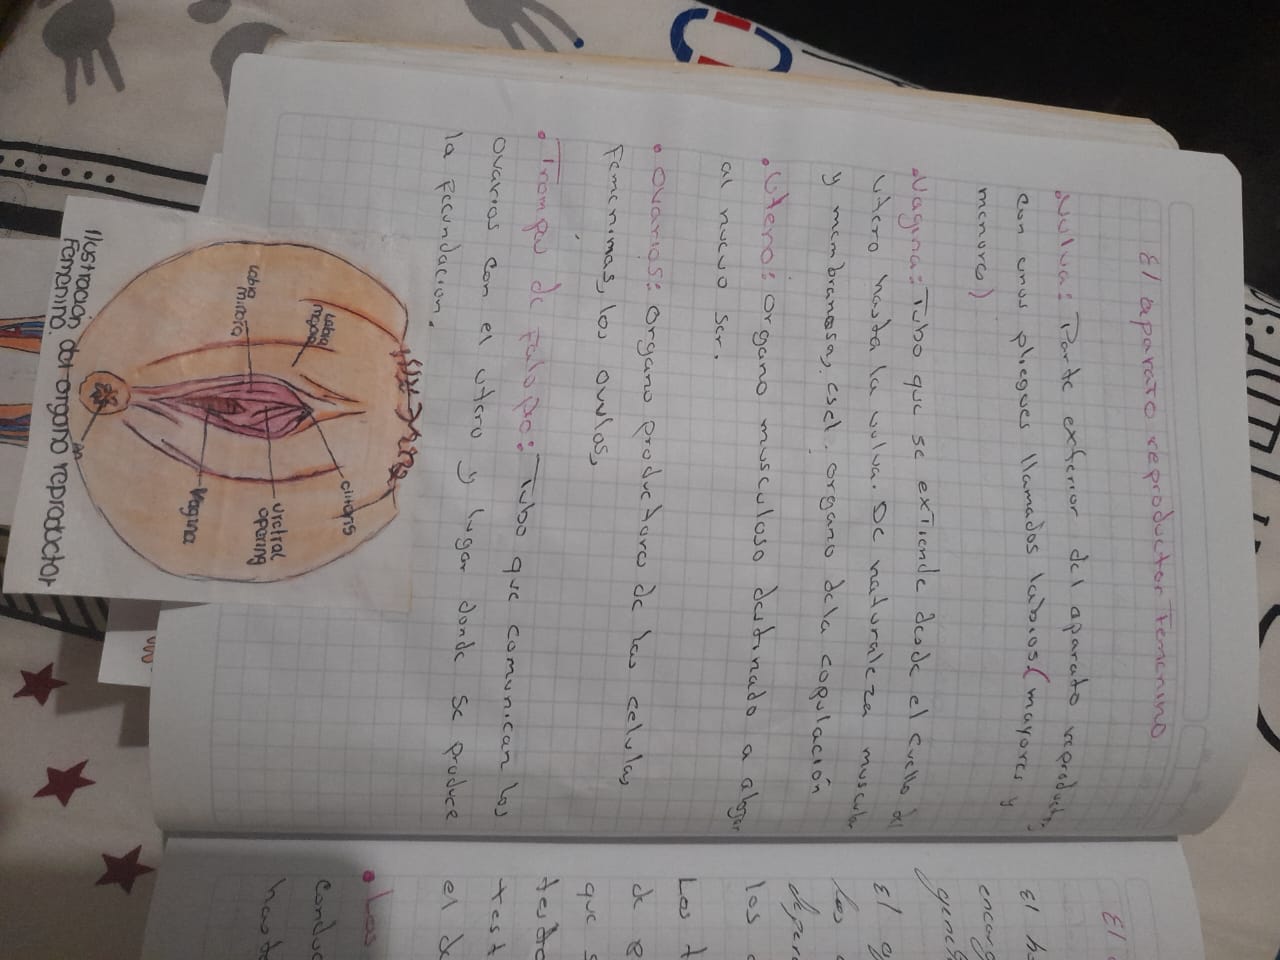 El aparato reproductor femenino
• Vulva: Parte exterior del aparato reproductor,
con unos pliegues llamados labios (mayores y
menores)
• Vagina: Tubo que se extiende desde el cuello del
utero hasta la vulva. De naturaleza muscular
y membranosa, es el organo de la copulación
• Utero: organo musculoso destinado a alojar
al nuevo ser.
• Ovarios: organo productoro de las celulas
Femeninas, los ovulos,
• Trompa de Falopio: Tubo que comunican los
ovarios con el utero y lugar donde se produce
la fecundacion.
labia majora
labia minora
clitoris
uretral opening
Vagina
Ilustración del organo reproductor
Femenino
El
El h
encarg
El g
los
depen
los
Los t
de e
que s
testo
test
el de
• Los
conduc
hasta